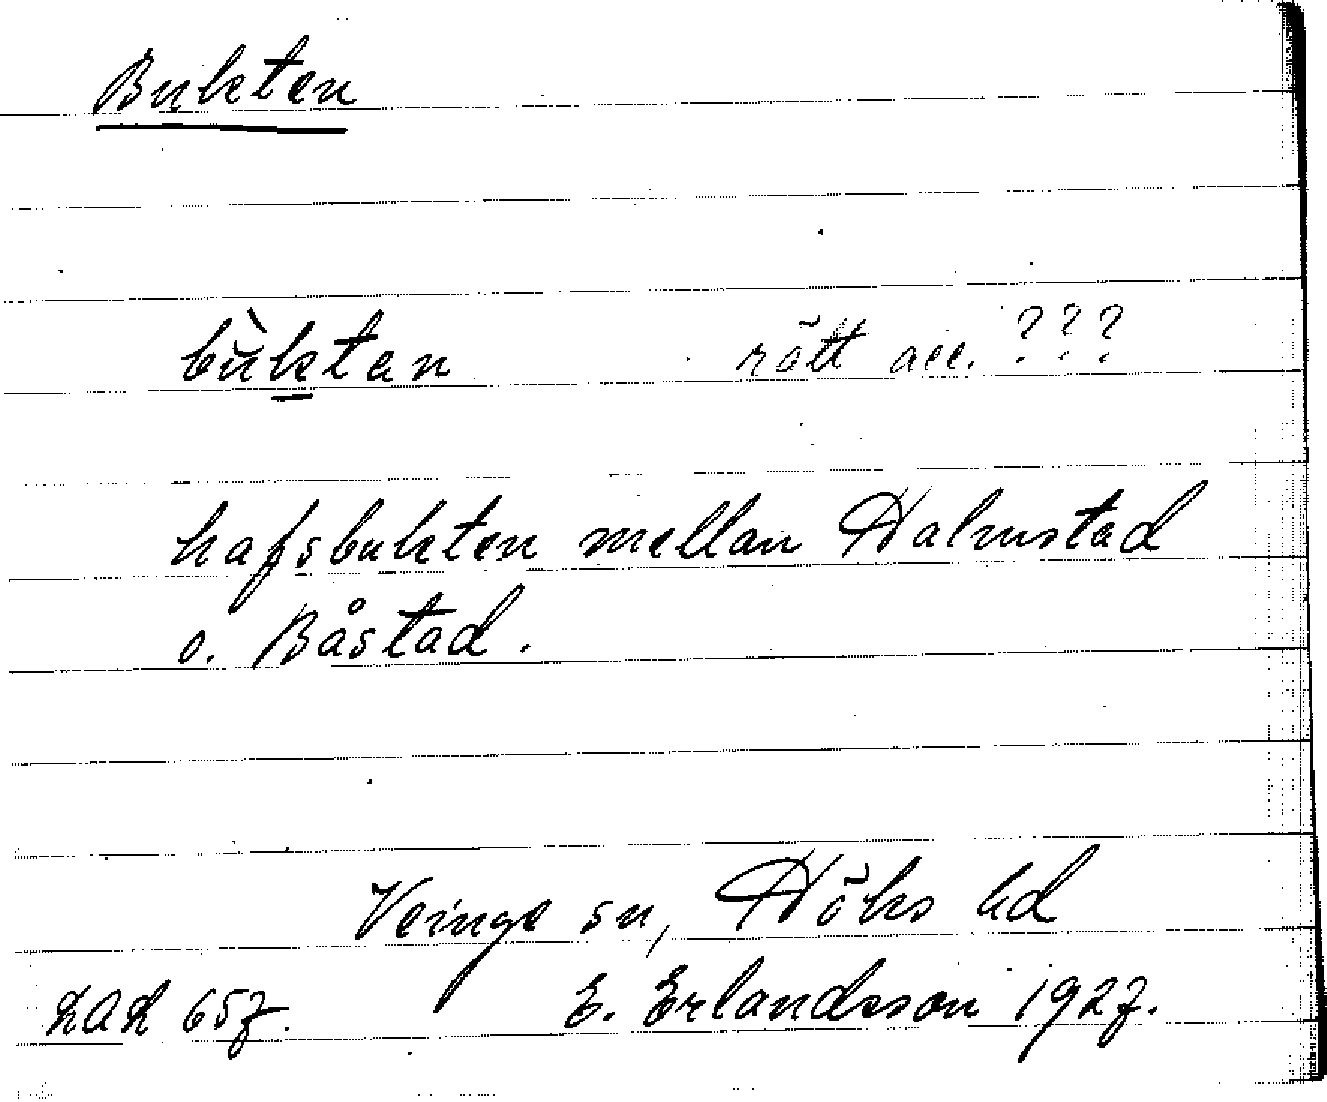 Bukten
bùktan rätt acc. ???
hafsbukten mellan Halmstad
o. Båstad.
Veinge sn, Höks hd
LAL 657. E. Erlandsson 1927.